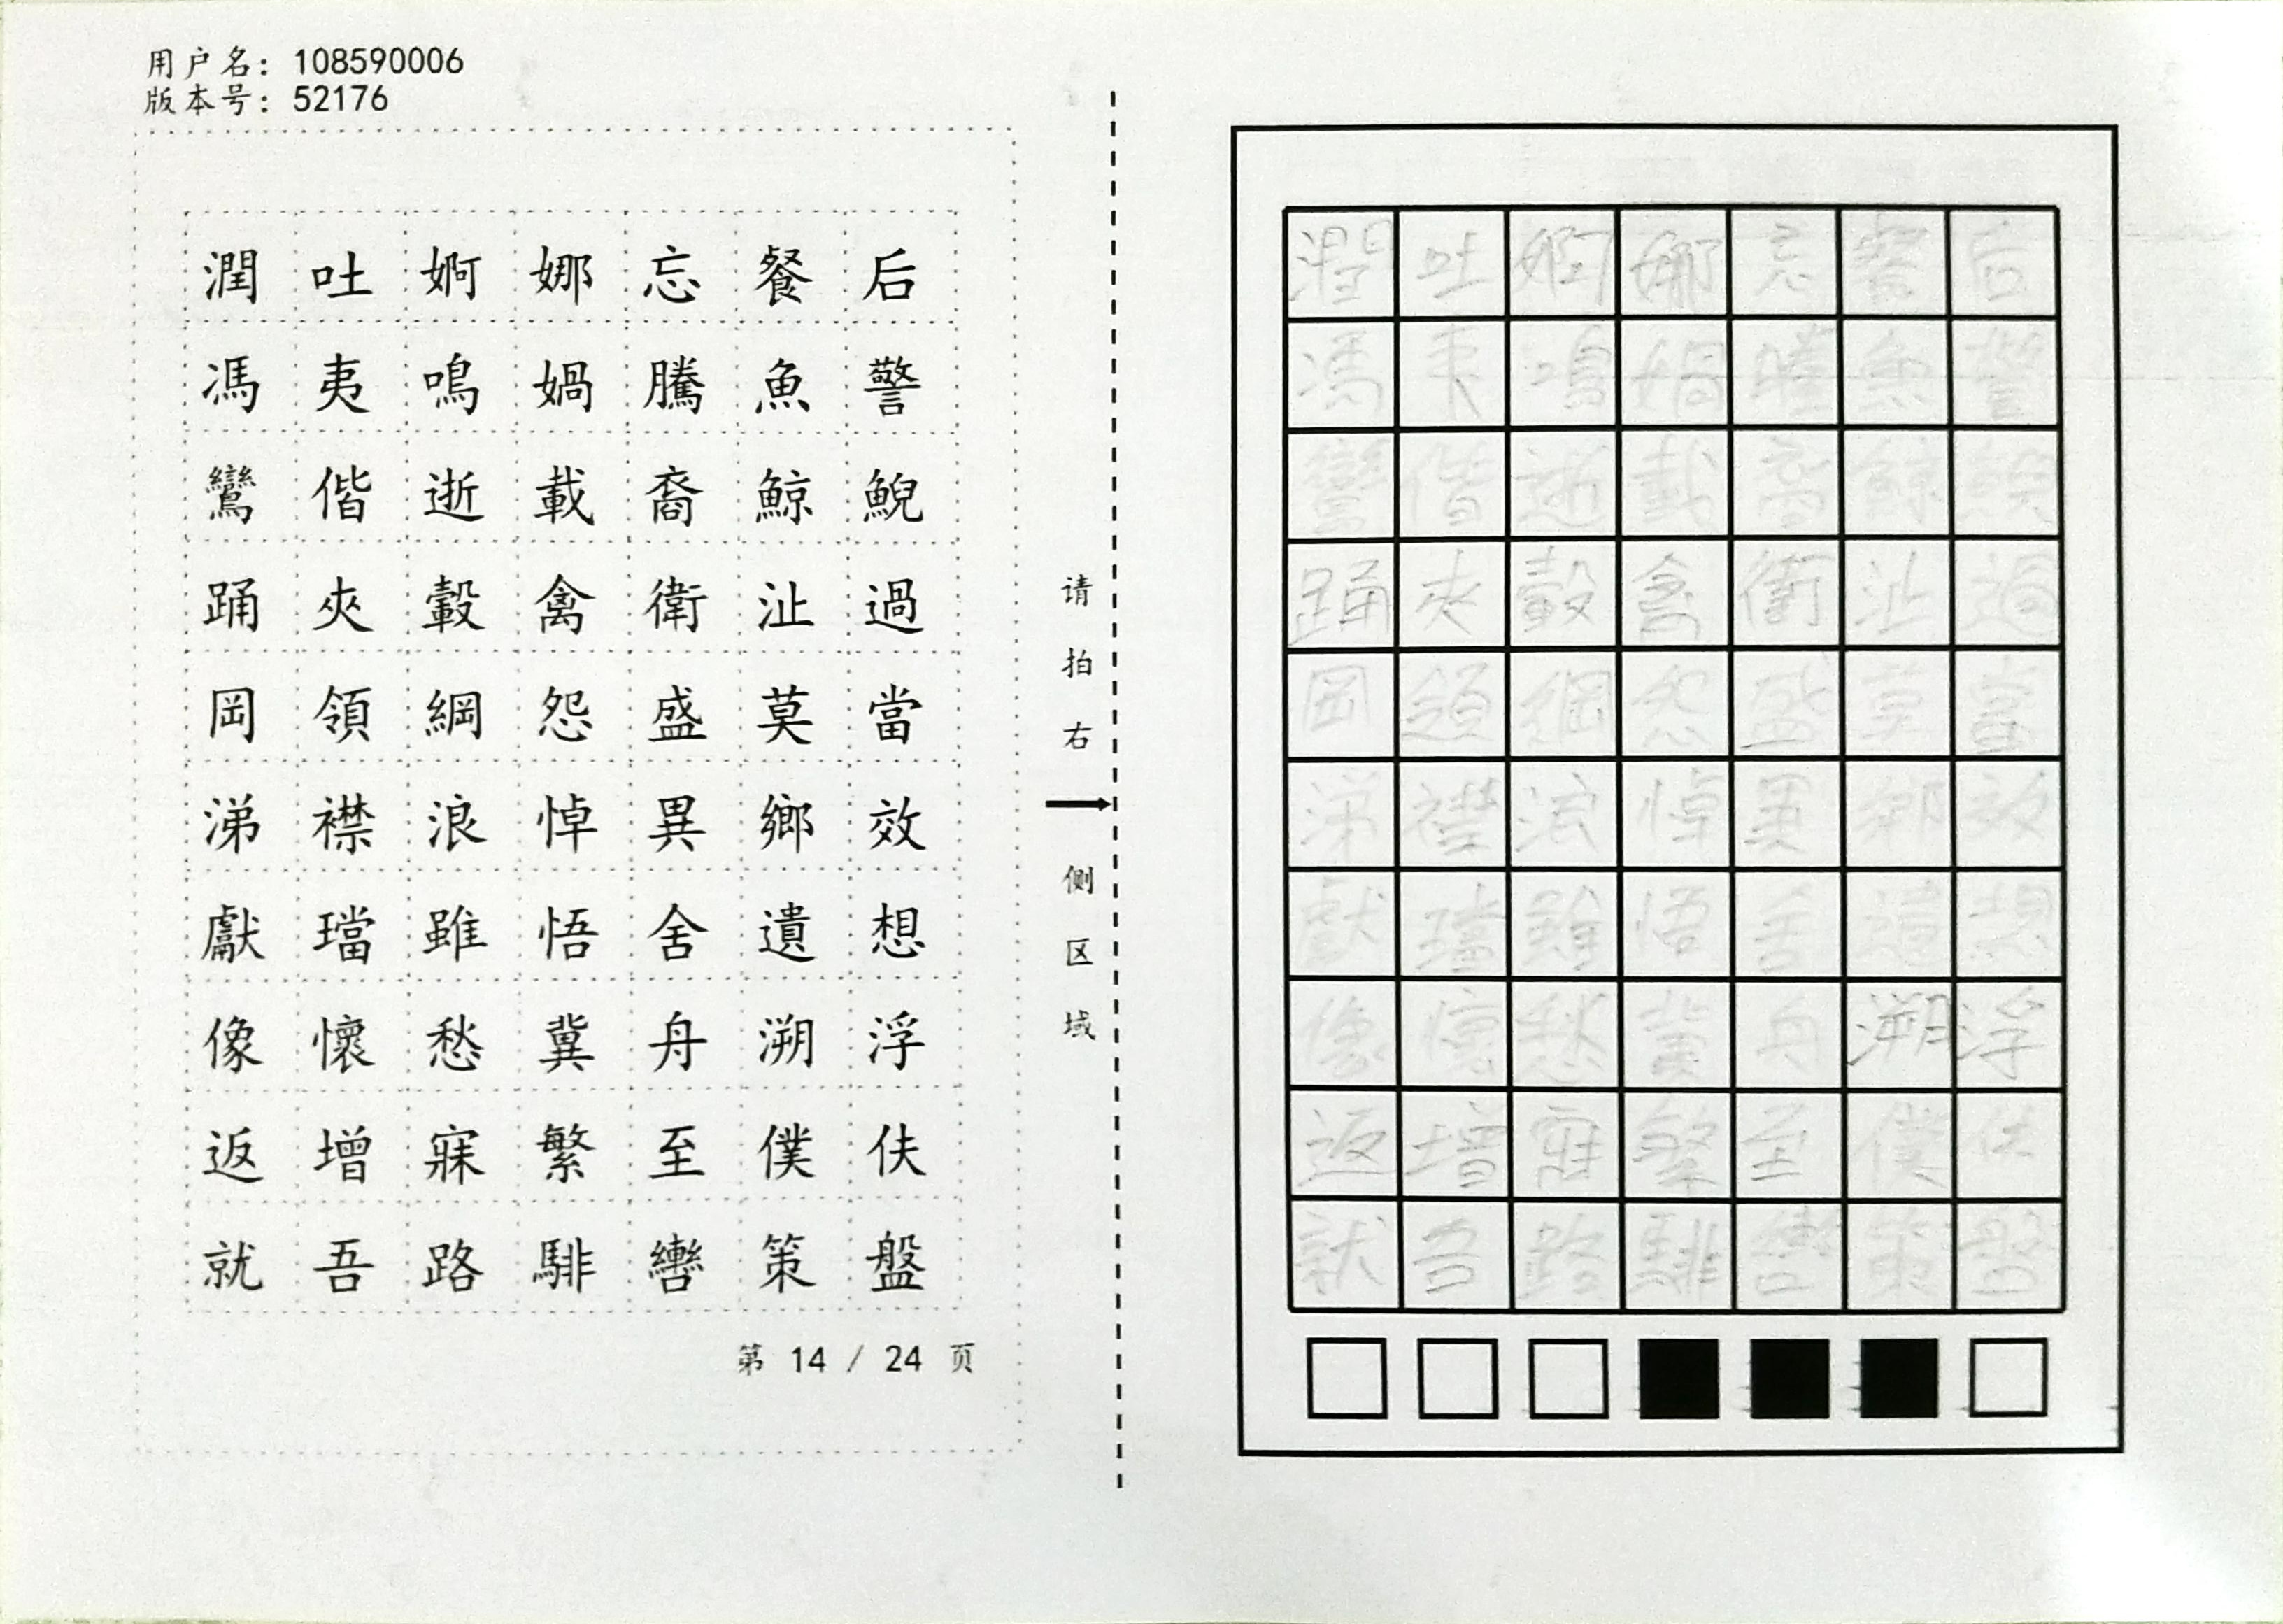 用户名: 108590006
版本号: 52176
潤吐婀娜忘餐后
馮夷鳴媧騰魚警
鸞偕逝載裔鯨鯢
踊夾轂禽衛沚過
岡領綱怨盛莫當
涕襟浪悼異鄉效
獻璫雖悟舍遺想
像懷愁冀舟溯浮
返增寐繁至僕伕
就吾路騑轡策盤
第 14 / 24 页
请拍右侧区域
潤吐婀娜忘餐后
馮夷鳴媧騰魚警
鸞偕逝載裔鯨鯢
踊夾轂禽衛沚過
岡領綱怨盛莫當
涕襟浪悼異鄉效
獻璫雖悟舍遺想
像懷愁冀舟溯浮
返增寐繁至僕伕
就吾路騑轡策盤